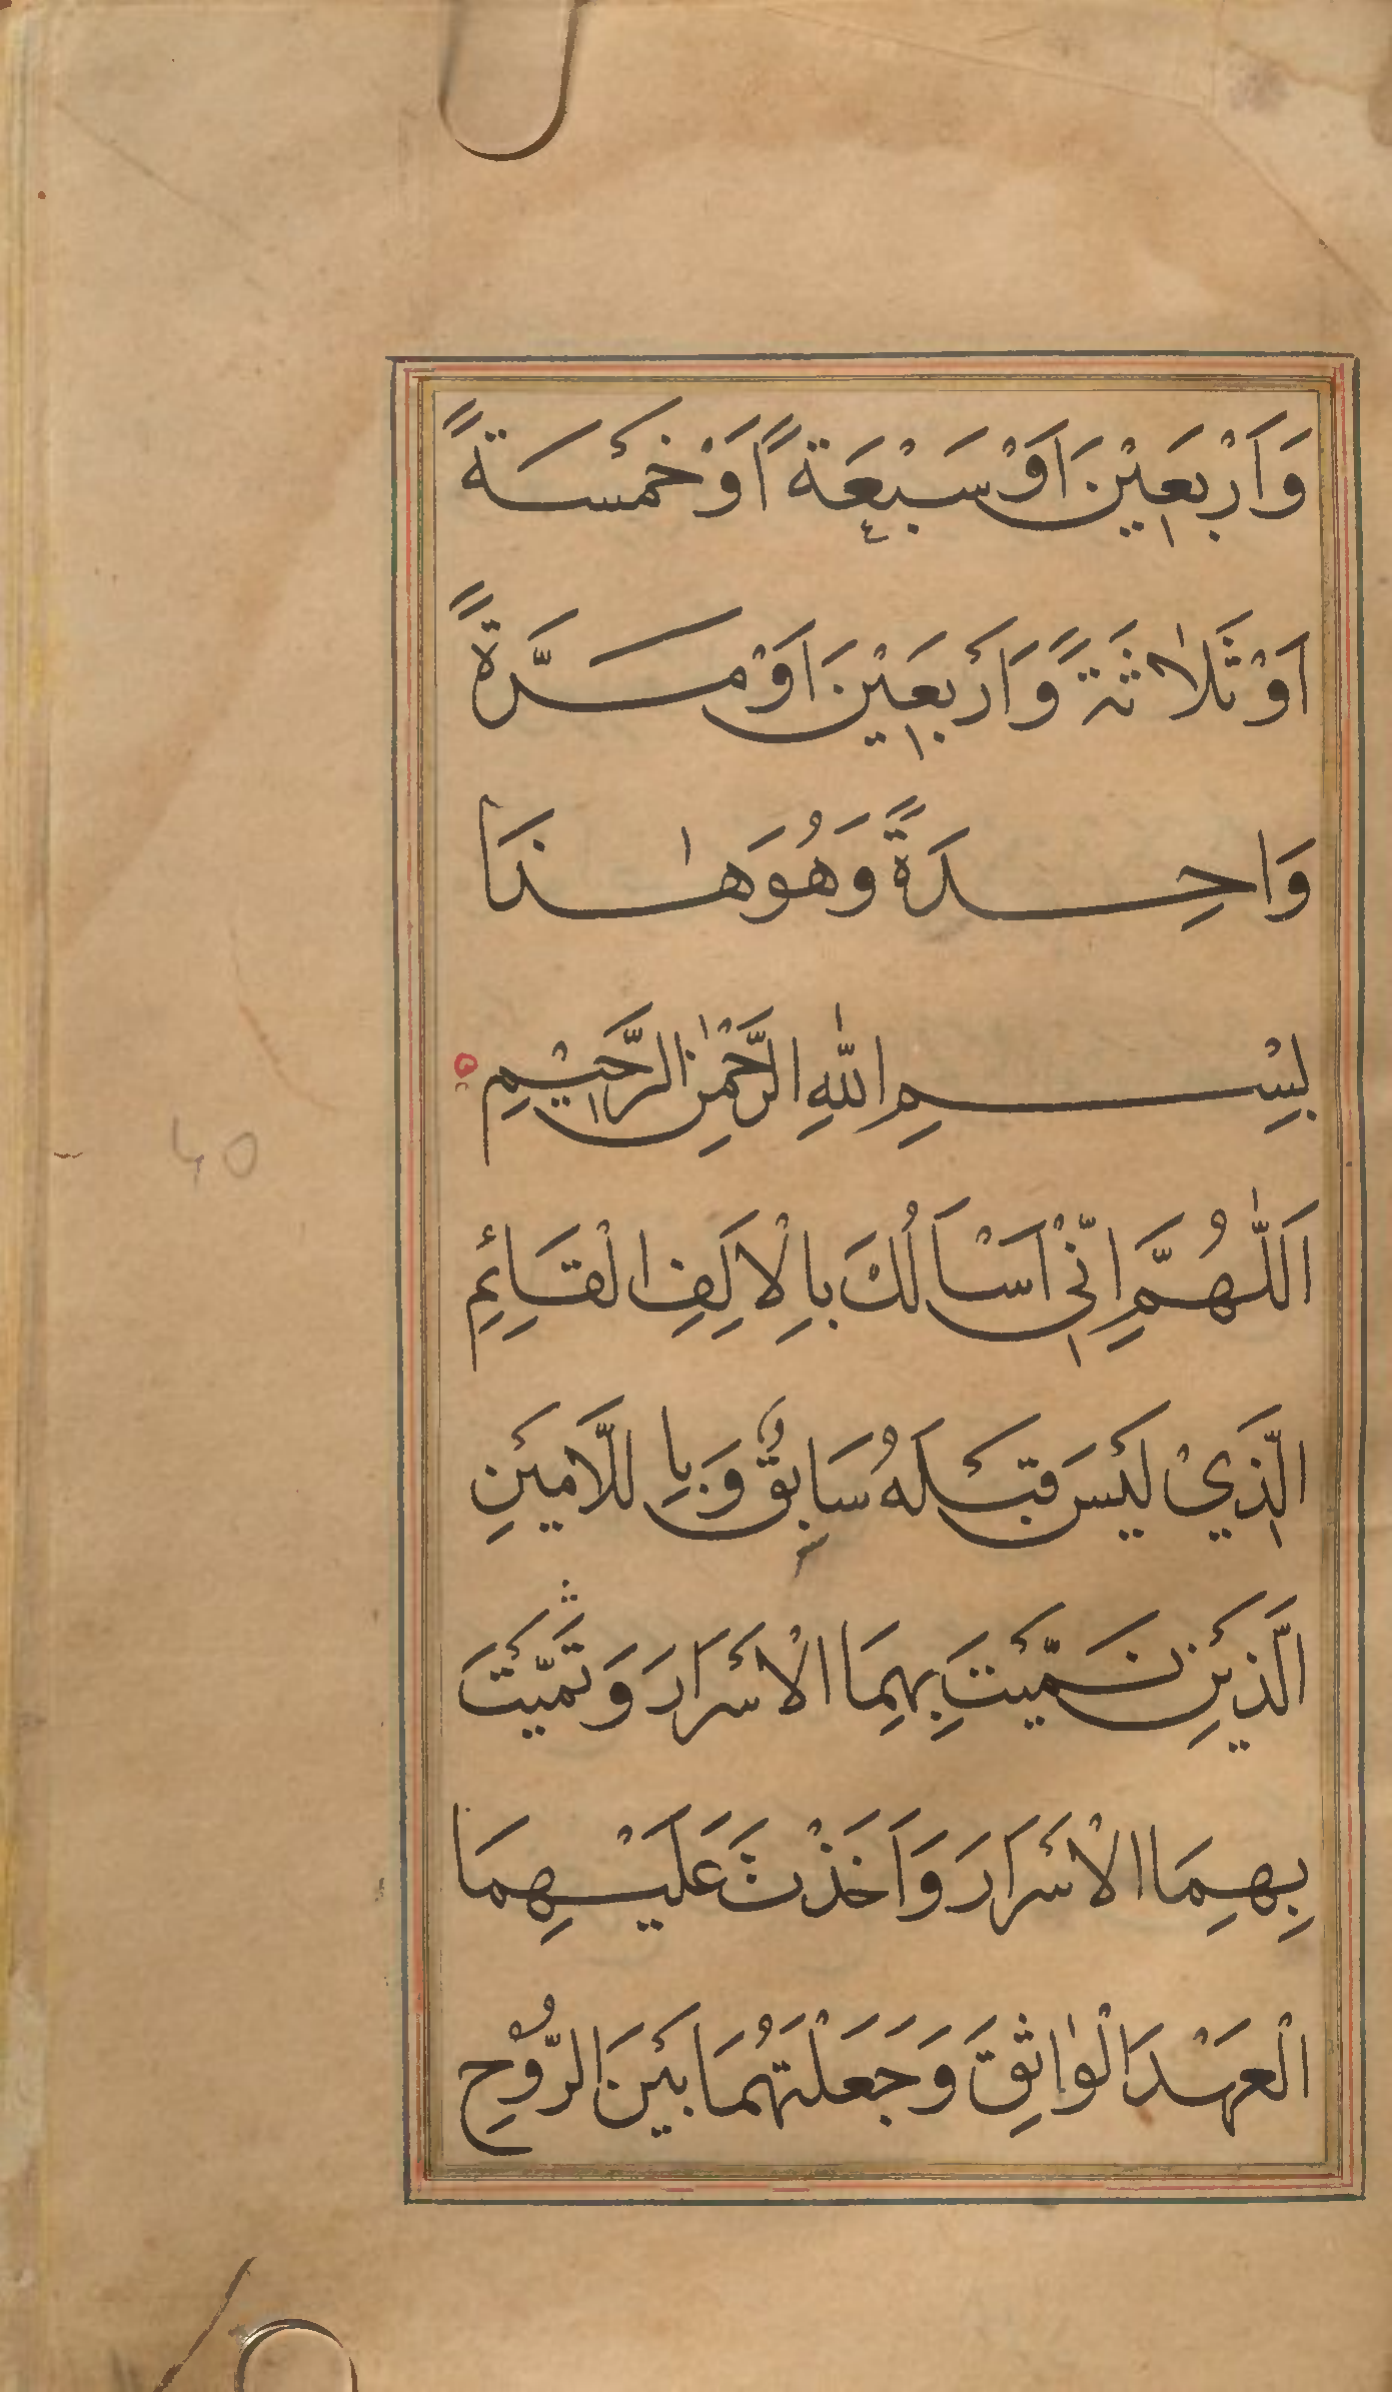 وَاَرْبَعِيْنَ اَوْ سَبْعَةً اَوْ خَمْسَةً
اَوْ ثَلٰاثَةً وَاَرْبَعِيْنَ اَوْ مَرَّةً
وَاحِدَةً وَهُوَ هٰذَا
بِسْمِ اللّٰهِ الرَّحْمٰنِ الرَّحِيْمِ
اَللّٰهُمَّ اِنِّيْ اَسْاَلُكَ بِالْاَلِفِ الْقَائِمِ
الَّذِيْ لَيْسَ قَبْلَهُ سَابِقٌ وَبِاللَّامَيْنِ
الَّذَيْنِ نَمَّيْتَ بِهِمَا الْاَسْرَارَ وَتَمَّيْتَ
بِهِمَا الْاَسْرَارَ وَاَخَذْتَ عَلَيْهِمَا
الْعَهْدَ الْوٰاثِقَ وَجَعَلْتَهُمَا بَيْنَ الرُّوْحِ
40